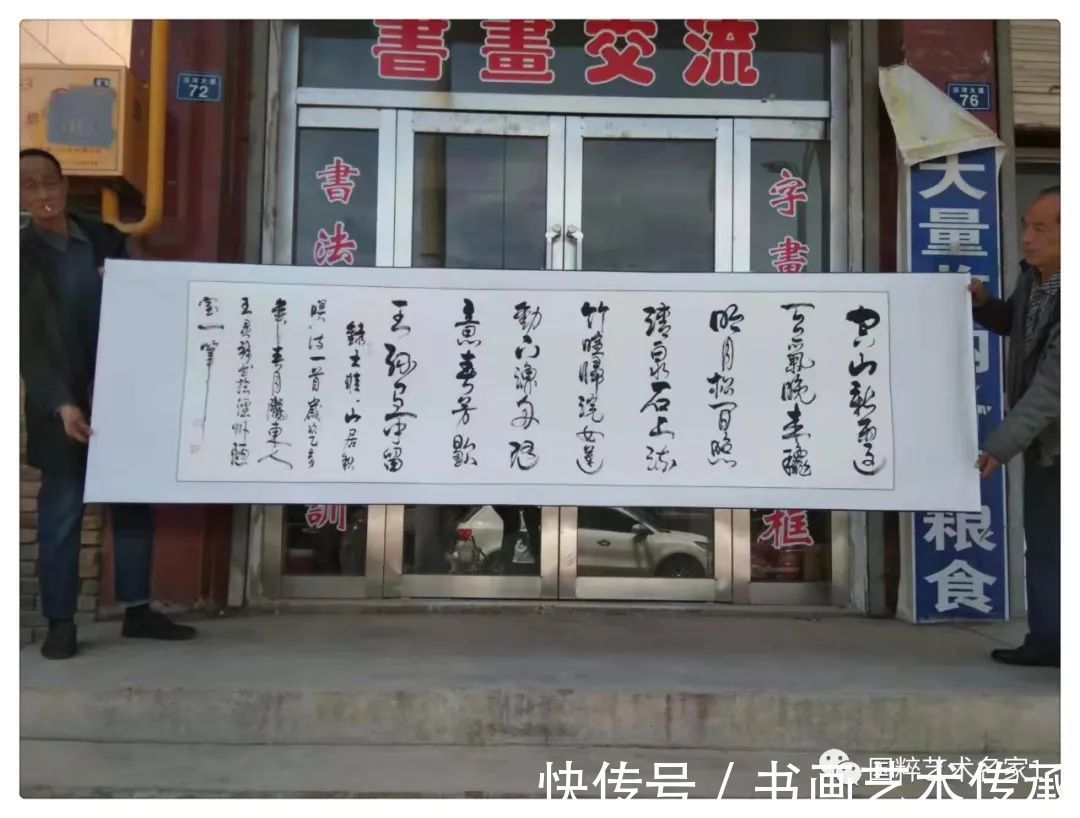 書畫交流
泾河大道
72
泾河大道
76
書法
訓
字畫
框
大量
粮食
空山新雨後
天氣晚来穐
明月松間照
清泉石上流
竹喧歸浣女蓮
動下漁舟隨
意春芳歇
王孫自可留
錄王維山居秋
暝詩一首歲次乙
年春月隴東人
室一筆
国粹艺术名家
快传号 / 书画艺术传承